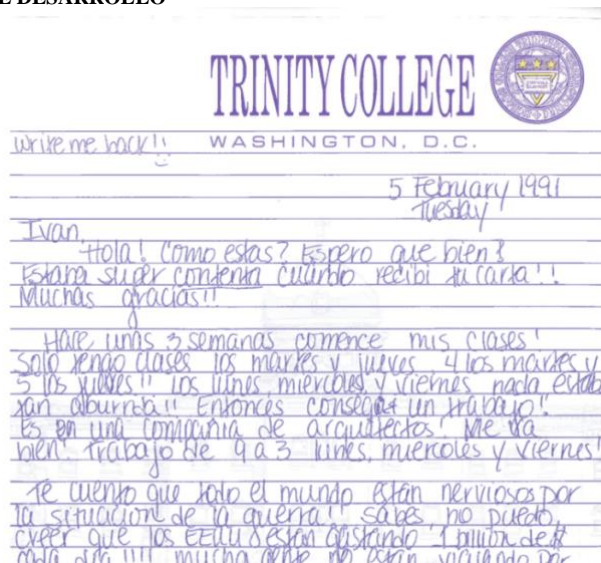 E DESARROLLO
TRINITY COLLEGE
WASHINGTON, D.C.
write me back!!
5 February 1991
Tuesday
Ivan,
Hola! Como estas? Espero que bien!
Estaba super contenta cuando recibi tu carta!!
Muchas gracias!!
Hace unas 3 semanas comence mis clases!
Solo tengo clases los martes y jueves 4 los martes y
5 los jueves!! Los lunes, miercoles y viernes nada estaba
tan aburrida!! Entonces consegui un trabajo!
Es en una compañia de arquitectos! Me va
bien! Trabajo de 9 a 3 lunes, miercoles y viernes!
Te cuento que todo el mundo estan nerviosos por
la situacion de la guerra!! Sabes, no puedo
creer que los EEUU estan gastando 1 de $
cada dia !!!! mucha gente no estan viajando por